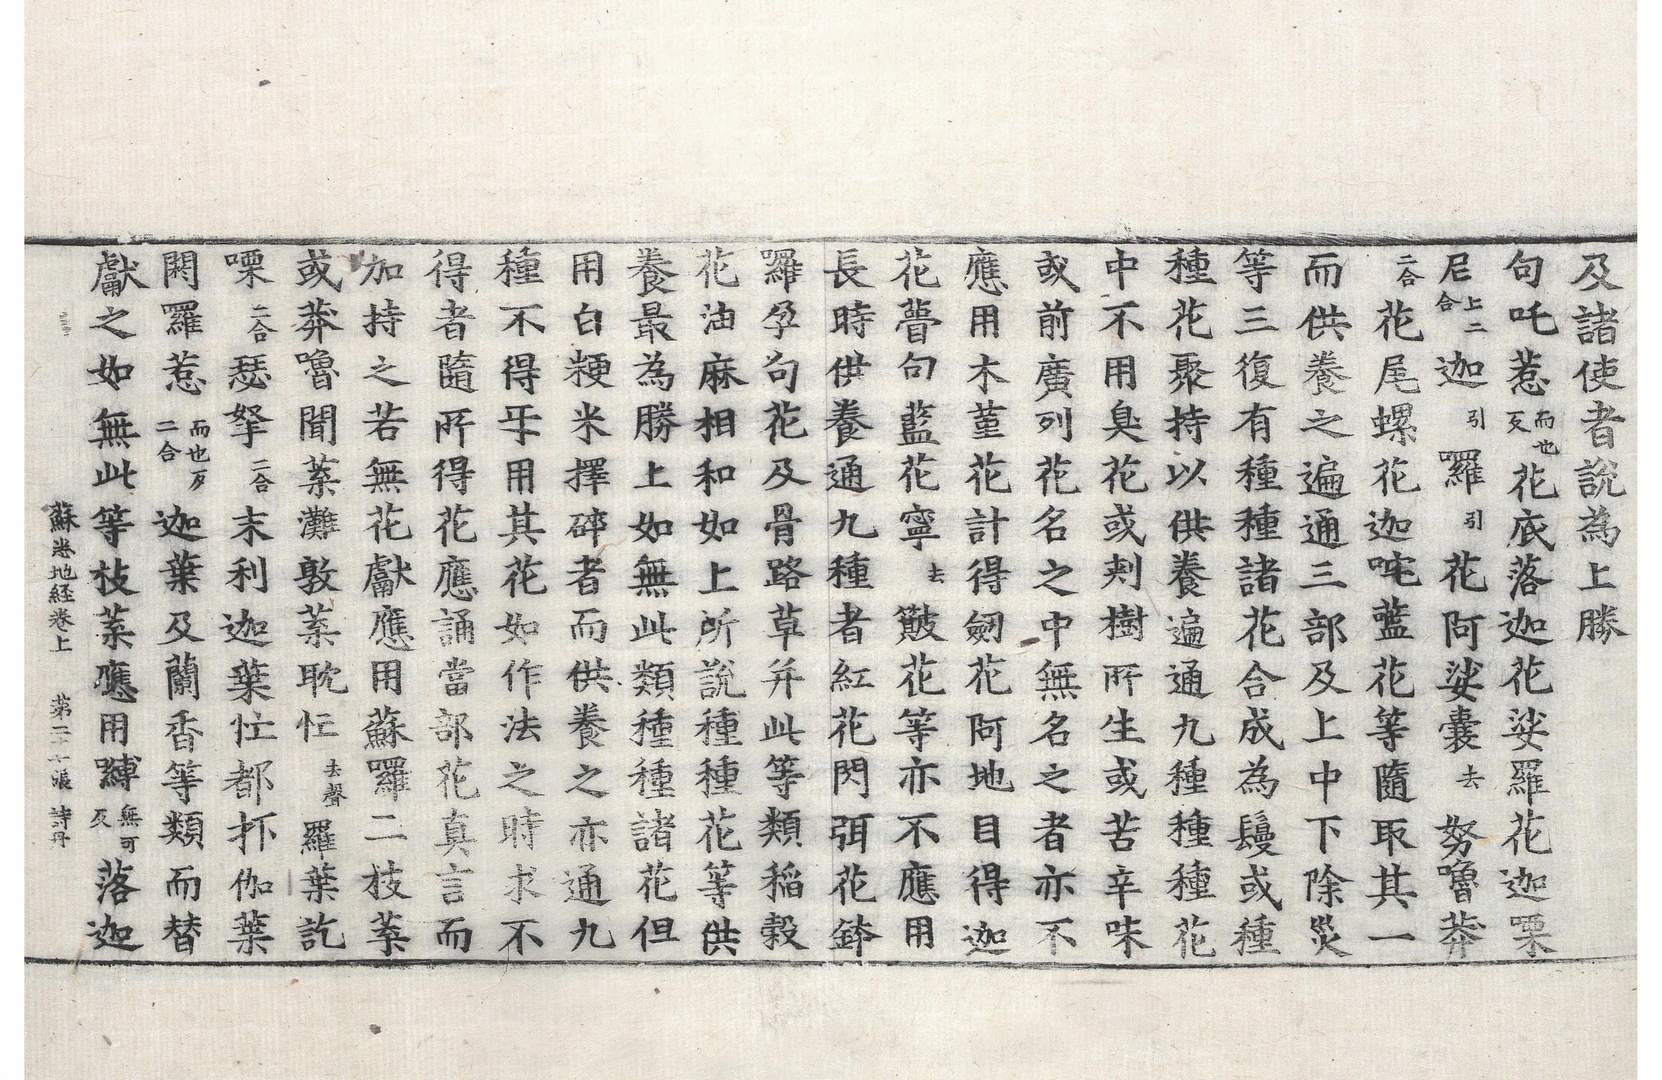 及諸使者說為上勝
句吒惹而也反花底落迦花娑羅花迦㗚
尼上二合迦引羅引花阿娑囊去努嚕莽
二合花尾螺花迦吨藍花等隨取其一
而供養之遍通三部及上中下除災
等三復有種種諸花合成為鬘或種
種花聚持以供養遍通九種種種花
中不用臭花或刾樹所生或苦辛味
或前廣列花名之中無名之者亦不
應用木堇花計得劒花阿地目得迦
花瞢句藍花寧去皾花等亦不應用
長時供養通九種者紅花閃弭花鉢
羅孕句花及骨路草并此等類稲穀
花油麻相和如上所說種種花等供
養最為勝上如無此類種種諸花但
用白粳米擇碎者而供養之亦通九
種不得乎用其花如作法之時求不
得者隨所得花應誦當部花真言而
加持之若無花獻應用蘇羅二枝葉
或莽嚕聞葉灘敦葉耽忙去聲羅葉訖
㗚二合瑟拏二合末利迦葉忙都抔伽葉
閼羅惹而也反二合迦葉及蘭香等類而替
獻之如無此等枝葉應用嚩無可反落迦
蘇悉地経卷上　第二十張　詩丹